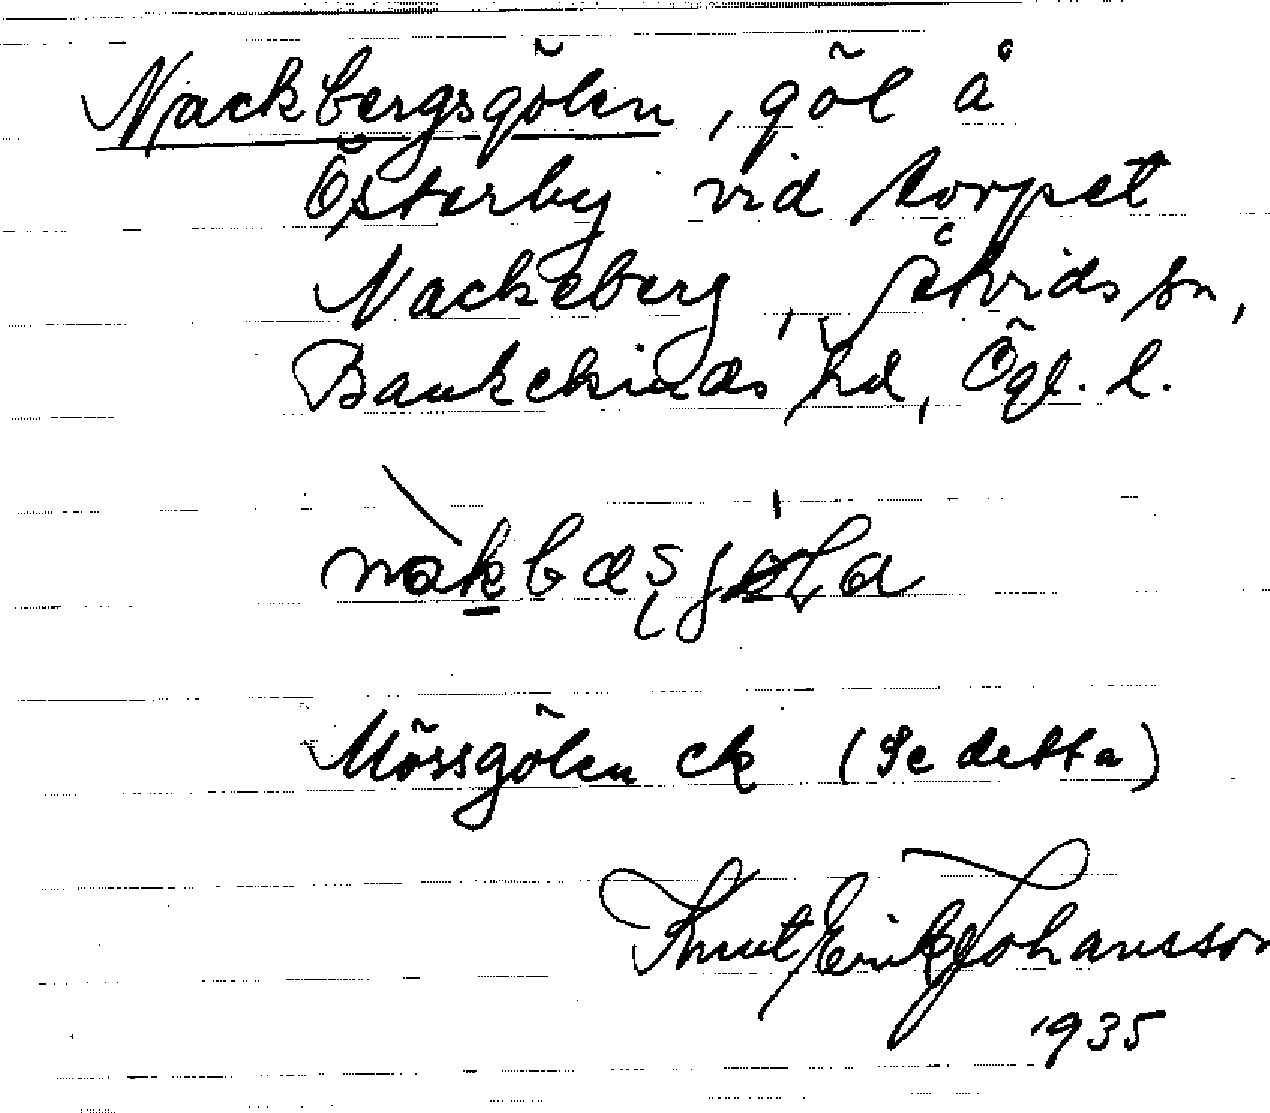 Nackbergsgölen, göl å
Österby vid torpet
Nackeberg, Åtvids sn,
Bankekinds hd, Ögl. l.
Mössgölen ek (Se detta)
Knut Erik Johansson
1935